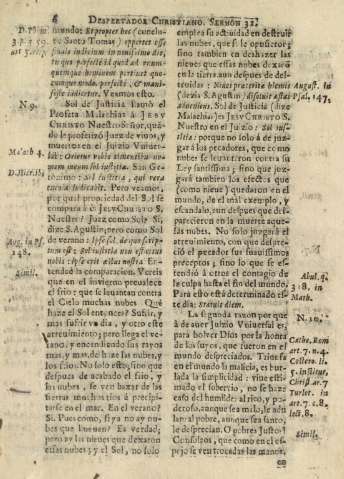 6 DESPERTADOR CHRISTIANO. SERMON 32.
D. Th. in
3. p. q. 59.
art. 5.
mundo: Et propter hoc (concluye
Santo Tomás) oportet esse
finale iudicium in
ut perfecte id quod ad unum-
quemque hominem pertinet quo-
cunque modo, perfecte, & mani-
feste iudicetur. Veamos esto.
N. 9.
Sol de Justicia llamó el
Profeta Malachias à JESV
CHRISTO Nuestro Señor, quãdo
le profetizó Juez de vivos, y
muertos en el Juizio Vniver-
Malach. 4.
sal: Orietur vobis timentibus no-
men meum Sol iustitiæ. San Ge-
D. Hier. ibi
ronimo: Sol iustitiæ, qui vere
iudicabit. Pero veamos,
por qual propriedad del Sol se
compara à èl JESV-CHRISTO S.
Nuestro? Juez como Sol? Si,
dize S. Agustin; pero como Sol
Aug. in Ps.
148.
de verano:
est: Sol iustitiæ
nobis:
Simil.
tended la comparacion. Vereis
que en el invierno prevalece
el frio; que se levantan contra
el Cielo muchas nubes. Què
haze el Sol entonces? Sufrir, y
mas sufrir vn dia, y otro este
atrevimiento; pero llega el ve-
rano, y encendiendo sus rayos
mas, y mas, deshaze las nubes, y
los frios. No solo esto, sino que
despues de acabado el frio, y
las nubes, se ven baxar de las
sierras muchos rios à precipi-
tarse en el mar. En el verano?
Si. Pues como, si ya no ay nu-
bes que llueven? Es verdad;
pero ay las nieves que dexaron
essas nubes; y el Sol, no solo
emplea su actividad en destruir
las nubes, que se le opusieron;
sino tambien en deshazer las
nieves que essas nubes dexaron
en la tierra aun despues de des-
truidas: Nives præterita hiemis
August. in
Psal. 147.
(dezia S. Agustin) dissolvit æstas
Sol de Justicia (dize
Malachias) es JESV-CHRISTO S.
Nuestro en el Juizio: Sol iusti-
tiæ: porque no solo à de juzgar
à los pecadores, que como
nubes se levantaron contra su
Ley santissima; sino que juzgará
tambien los efectos que
(como nieve) quedaron en el
mundo, de el mal exemplo, y
escandalo, aun despues que des-
parecieron en la muerte aque-
llas nubes. No solo juzgará el
atrevimiento, con que despre-
ció el pecador sus suavissimos
preceptos; sino lo que se es-
tendió à otros el contagio de
Abul. q.
318. in
Math.
la culpa hasta el fin del mundo.
Para esto está determinado es-
te dia: statuit diem.
N. 10.
La segunda razon por que
à de auer Juizio Vniversal es,
para bolver Dios por la honra
de los suyos, que fueron en el
mundo despreciados. Triunfa
en el mundo la malicia, es bur-
lada la simplicidad: viue esti-
mado el sobervio, no se haze
caso del humilde: al rico, y po-
deroso, aunque sea malo, le adu-
lan: al pobre, aunque sea santo,
le desprecian. O pobres Justos!
Simil.
Consolaos, que como en el es-
pejo se ven trocadas las manos,